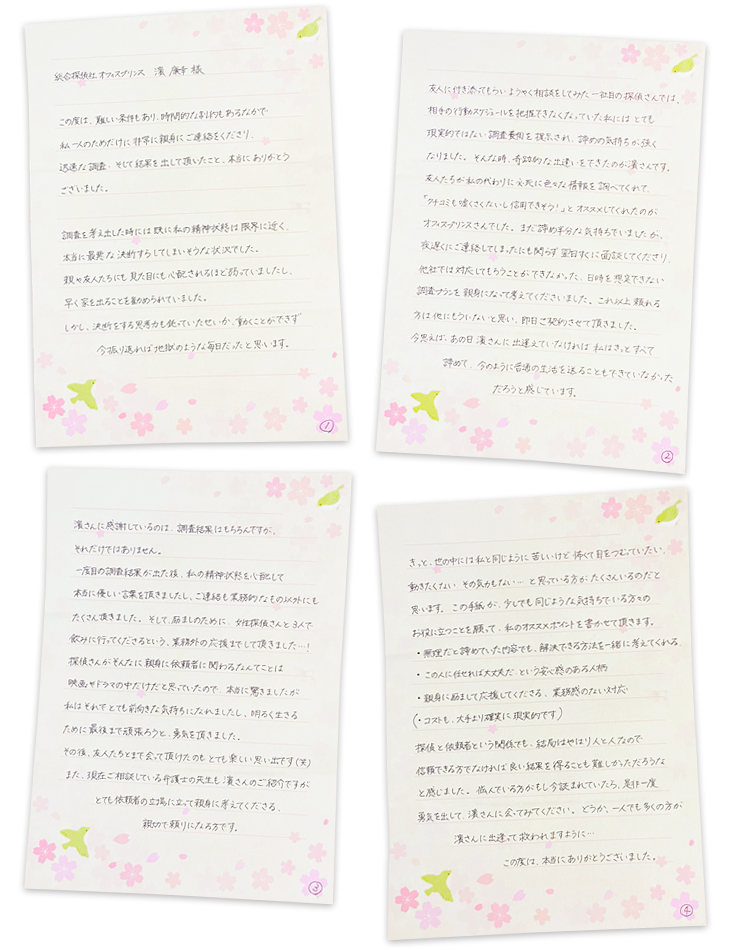 総合探偵社オフィスプリンス 濱 康幸 様
この度は、難しい条件もあり、時間的な制約もあるなかで
私一人のためだけに非常に親身にご連絡をくださり、
迅速な調査、そして結果を出して頂いたこと、本当にありがとう
ございました。
調査を考え出した時には既に私の精神状態は限界に近く、
本当に最悪な決断すらしてしまいそうな状況でした。
親や友人たちにも見た目にも心配されるほど弱っていましたし、
早く家を出ることを勧められていました。
しかし、決断をする思考力も鈍っていたせいか、動くことができず
今振り返れば地獄のような毎日だったと思います。
①
友人に付き添ってもらいようやく相談をしてみた一社目の探偵さんでは、
相手の行動スケジュールを把握できなくなっていた私にはとても
現実的ではない調査費用を提示され、諦めの気持ちが強く
なりました。そんな時、奇跡的な出逢いをできたのが濱さんです。
友人たちが私の代わりに必死に色々な情報を調べてくれて、
「クチコミも嘘くさくないし信用できそう!」とオススメしてくれたのが
オフィスプリンスさんでした。まだ諦め半分な気持ちでいましたが、
夜遅くにご連絡してしまったにも関らず翌日すぐに面談してくださり、
他社では対応してもらうことができなかった、日時を想定できない
調査プランを親身になって考えてくださいました。これ以上頼れる
方は他にもういないと思い、即日ご契約させて頂きました。
今思えば、あの日濱さんに出逢えていなければ私はきっとすべて
諦めて、今のように普通の生活を送ることもできていなかった
だろうと感じています。
②
濱さんに感謝しているのは、調査結果はもちろんですが、
それだけではありません。
一度目の調査結果が出た後、私の精神状態を心配して
本当に優しい言葉を頂きましたし、ご連絡も業務的なもの以外にも
たくさん頂きました。そして、励ましのために、女性探偵さんと3人で
飲みに行ってくださるという、業務外の応援までして頂きました…!
探偵さんがそんなに親身に依頼者に関わるなんてことは
映画やドラマの中だけだと思っていたので、本当に驚きましたが
私はそれでとても前向きな気持ちになれましたし、明るく生きる
ために最後まで頑張ろうと、勇気を頂きました。
その後、友人たちとまで会って頂けたのもとても楽しい思い出です(笑)
また、現在ご相談している弁護士の先生も濱さんのご紹介ですが
とても依頼者の立場に立って親身に考えてくださる、
親切で頼りになる方です。
③
きっと、世の中には私と同じように苦しいけど怖くて目をつむっていたい、
動きたくない、その気力もない…と思っている方がたくさんいるのだと
思います。この手紙が、少しでも同じような気持ちでいる方々の
お役に立つことを願って、私のオススメポイントを書かせて頂きます。
・無理だと諦めていた内容でも、解決できる方法を一緒に考えてくれる。
・この人に任せれば大丈夫だという安心感のある人柄
・親身に励まして応援してくださる、業務感のない対応
(・コストも、大手より確実に現実的です)
探偵と依頼者という関係でも、結局はやはり人と人なので
信頼できる方でなければ良い結果を得ることも難しかっただろうな
と感じました。悩んでいる方がもし今読まれていたら、是非一度
勇気を出して、濱さんに会ってみてください。どうか、一人でも多くの方が
濱さんに出逢って救われますように…
この度は、本当にありがとうございました。
④